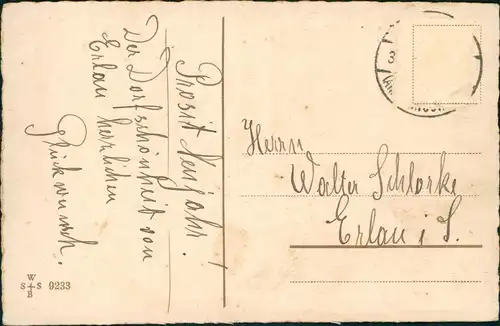 Prosit Neujahr!
Der Dorfschönheit von
Erlau herzlichen
Glückwunsch.
Herrn
Walter Schlorke
Erlau i. S.
W
S S 9233
B
3